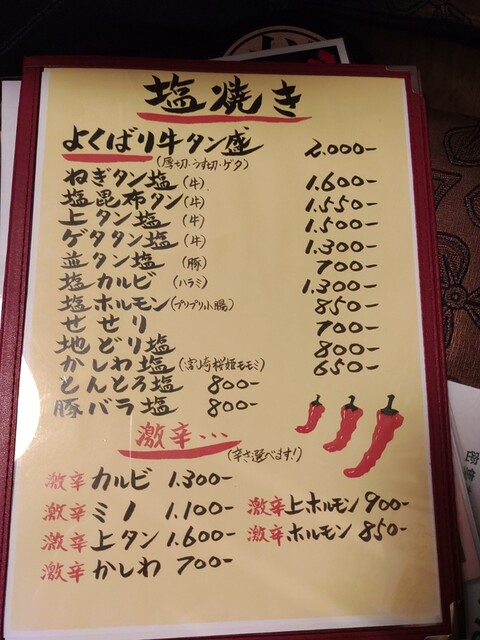 塩焼き
よくばり牛タン盛 2.000-
(厚切・うす切・ゲタ)
ねぎタン塩(牛) 1.600-
塩昆布タン(牛) 1.550-
上タン塩(牛) 1.500-
ゲタタン塩(牛) 1.300-
並タン塩(豚) 700-
塩カルビ(ハラミ) 1.300-
塩ホルモン(プリプリ小腸) 850-
せせり 700-
地どり塩 800-
かしわ塩(宮崎桜姫モモミ) 650-
とんとろ塩 800-
豚バラ塩 800-
激辛・・・
(辛さ選べます!)
激辛カルビ 1.300-
激辛ミノ 1.100- 激辛上ホルモン 900-
激辛上タン 1.600- 激辛ホルモン 850-
激辛かしわ 700-